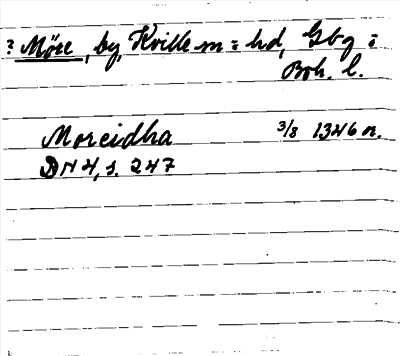 ? Möre, by, Kville sn o hd, Gbg o
Boh. l.
Moreidha 3/8 1346 n.
DN 4, s. 247